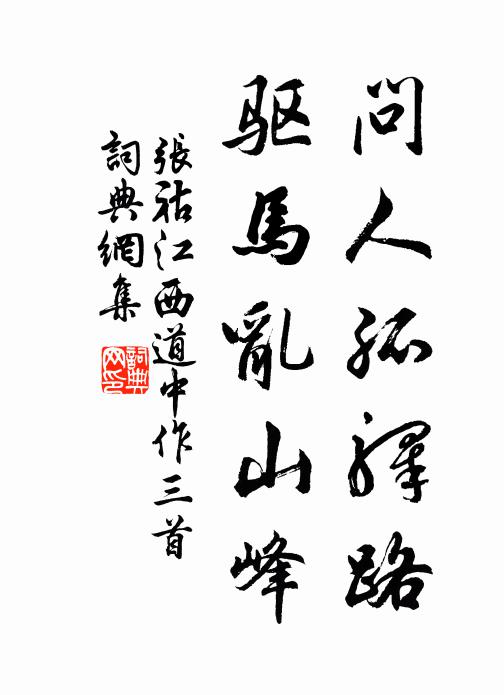 问人孤驛路
驱馬亂山峰
張祜江西道中作三首
詞典網集
詞典
网印